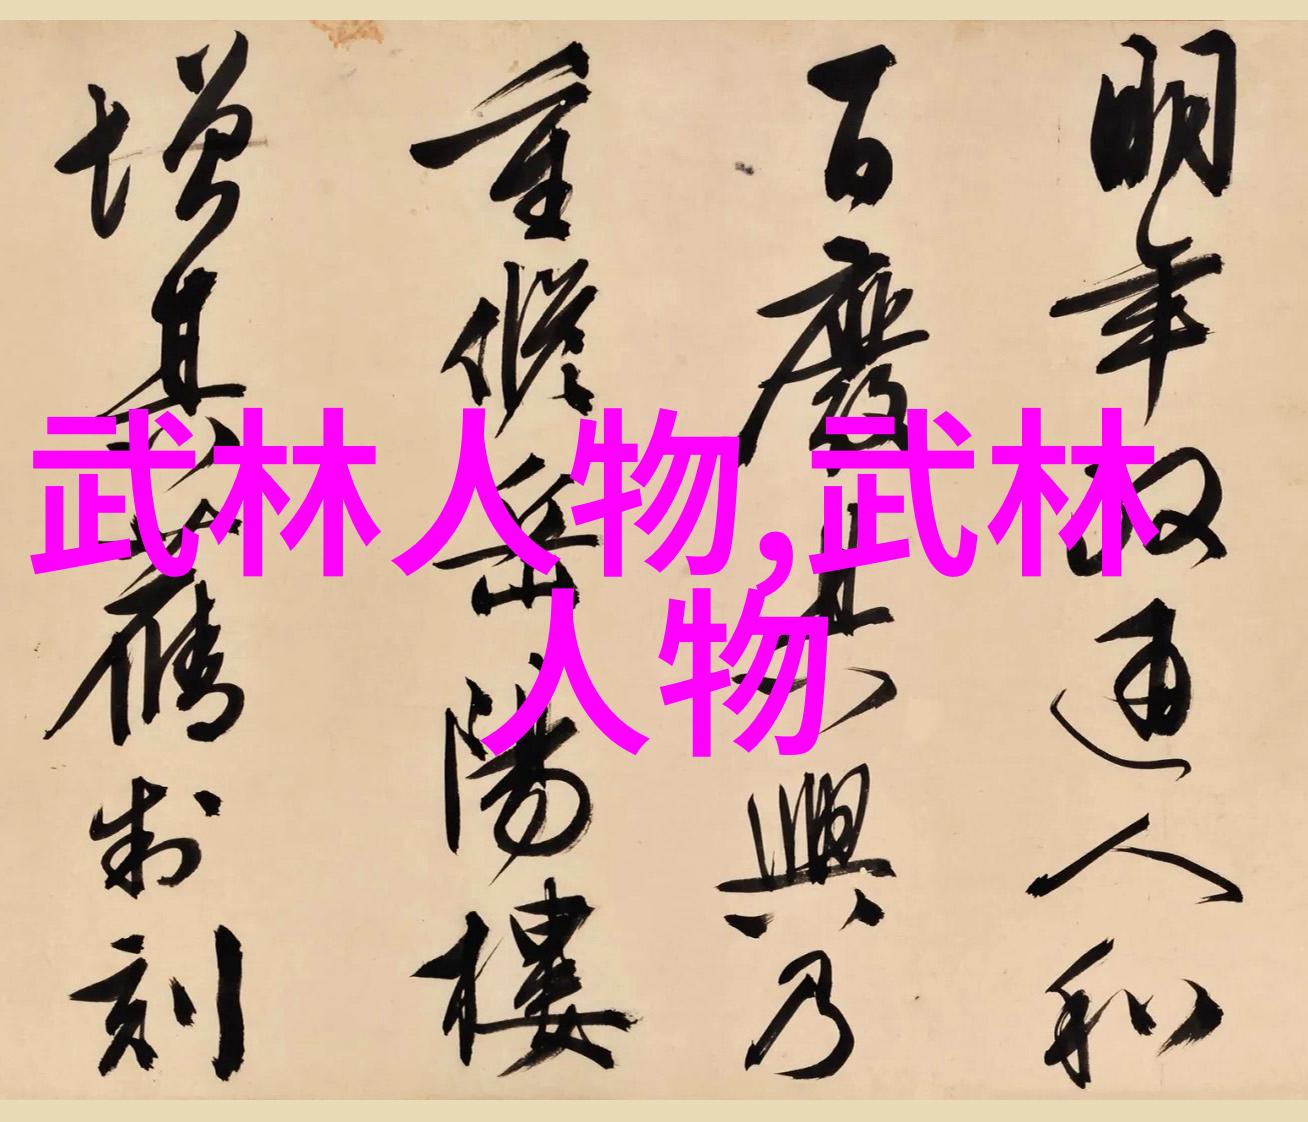 明年政通人和
百廢具興乃
重修岳陽樓
增其舊制刻
武林人物,武林
人物